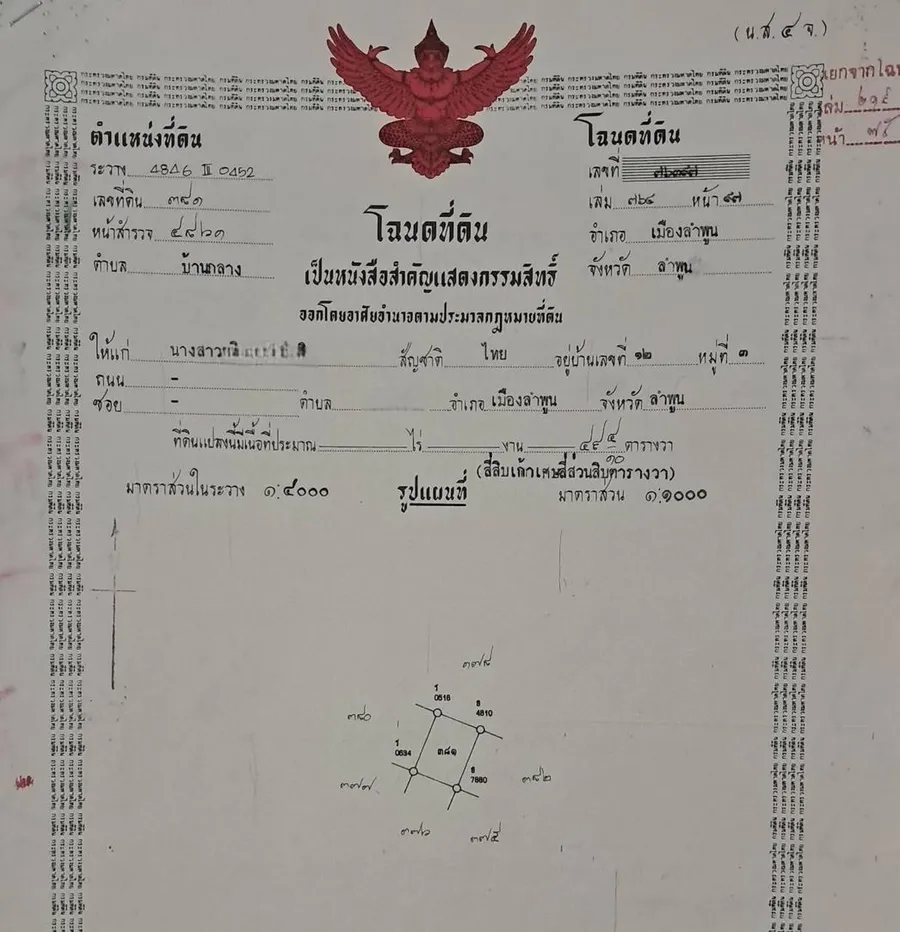 (น.ส. ๔ จ.)
แยกจากโฉน
เล่ม ๒๑๙
หน้า ๗๕
ตำแหน่งที่ดิน
ระวาง 4846 II 0452
เลขที่ดิน ๓๘๑
หน้าสำรวจ ๔๘๖๑
ตำบล บ้านกลาง
โฉนดที่ดิน
เลขที่
เล่ม ๗๖๔ หน้า ๘๗
อำเภอ เมืองลำพูน
จังหวัด ลำพูน
โฉนดที่ดิน
เป็นหนังสือสำคัญแสดงกรรมสิทธิ์
ออกโดยอาศัยอำนาจตามประมวลกฎหมายที่ดิน
ให้แก่ นางสาว สัญชาติ ไทย อยู่บ้านเลขที่ ๑๒ หมู่ที่ ๓
ถนน -
ซอย - ตำบล อำเภอ เมืองลำพูน จังหวัด ลำพูน
ที่ดินแปลงนี้มีเนื้อที่ประมาณ ไร่ งาน ๔๙ ๔/๑๐ ตารางวา
(สี่สิบเก้าเศษสี่ส่วนสิบตารางวา)
มาตราส่วนในระวาง ๑:๔๐๐๐ รูปแผนที่ มาตราส่วน ๑:๑๐๐๐
๓๗๘
1
0616
8
4810
๓๘๐
๓๘๑
1
0634
6
7880
๓๗๗
๓๘๒
๓๗๖
๓๗๕